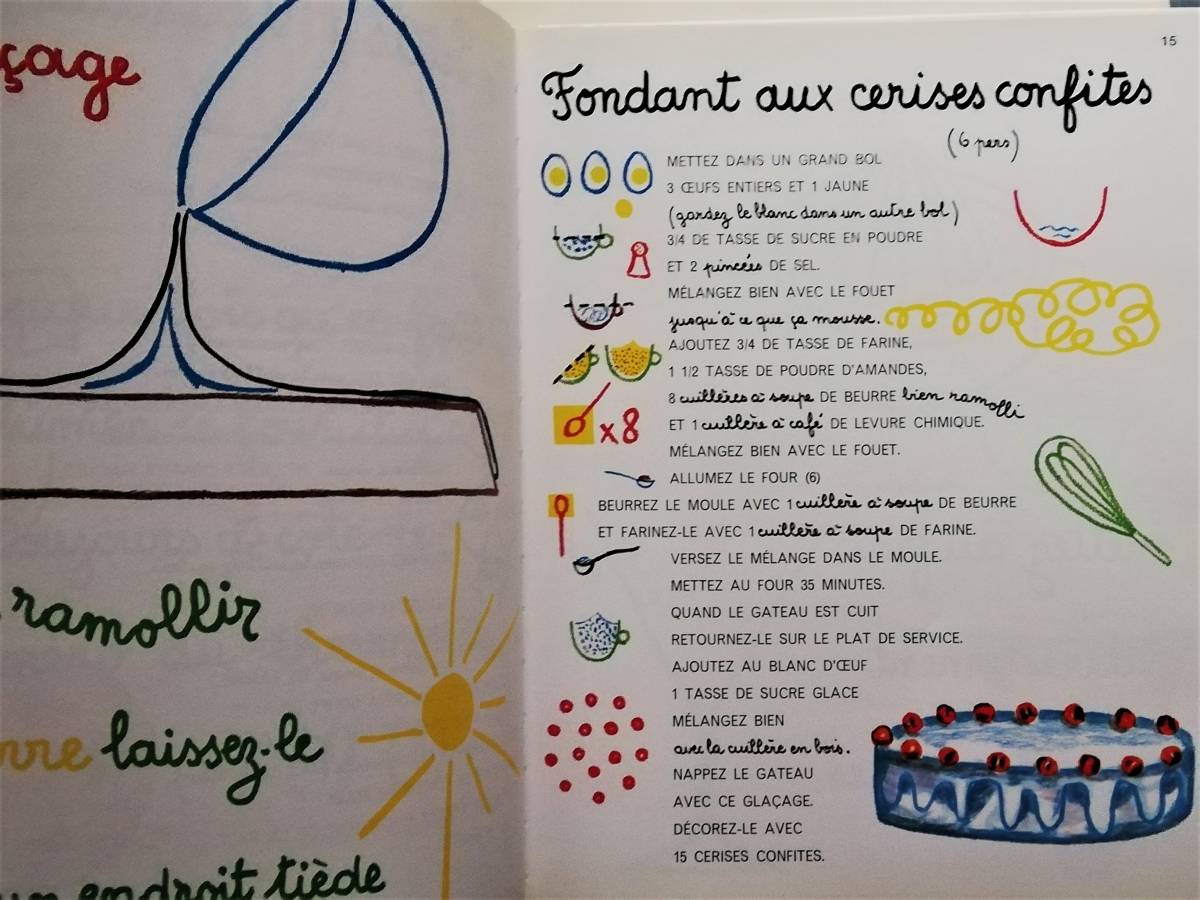 çage
ramollir
rre laissez-le
un endroit tiède
15
Fondant aux cerises confites
(6 pers)
METTEZ DANS UN GRAND BOL
3 ŒUFS ENTIERS ET 1 JAUNE
(gardez le blanc dans un autre bol)
3/4 DE TASSE DE SUCRE EN POUDRE
ET 2 pincées DE SEL.
MÉLANGEZ BIEN AVEC LE FOUET
jusqu'à ce que ça mousse.
AJOUTEZ 3/4 DE TASSE DE FARINE,
1 1/2 TASSE DE POUDRE D'AMANDES,
8 cuillères à soupe DE BEURRE bien ramolli
x8
ET 1 cuillère à café DE LEVURE CHIMIQUE.
MÉLANGEZ BIEN AVEC LE FOUET.
ALLUMEZ LE FOUR (6)
BEURREZ LE MOULE AVEC 1 cuillère à soupe DE BEURRE
ET FARINEZ-LE AVEC 1 cuillère à soupe DE FARINE.
VERSEZ LE MÉLANGE DANS LE MOULE.
METTEZ AU FOUR 35 MINUTES.
QUAND LE GATEAU EST CUIT
RETOURNEZ-LE SUR LE PLAT DE SERVICE.
AJOUTEZ AU BLANC D'ŒUF
1 TASSE DE SUCRE GLACE
MÉLANGEZ BIEN
avec la cuillère en bois.
NAPPEZ LE GATEAU
AVEC CE GLAÇAGE.
DÉCOREZ-LE AVEC
15 CERISES CONFITES.